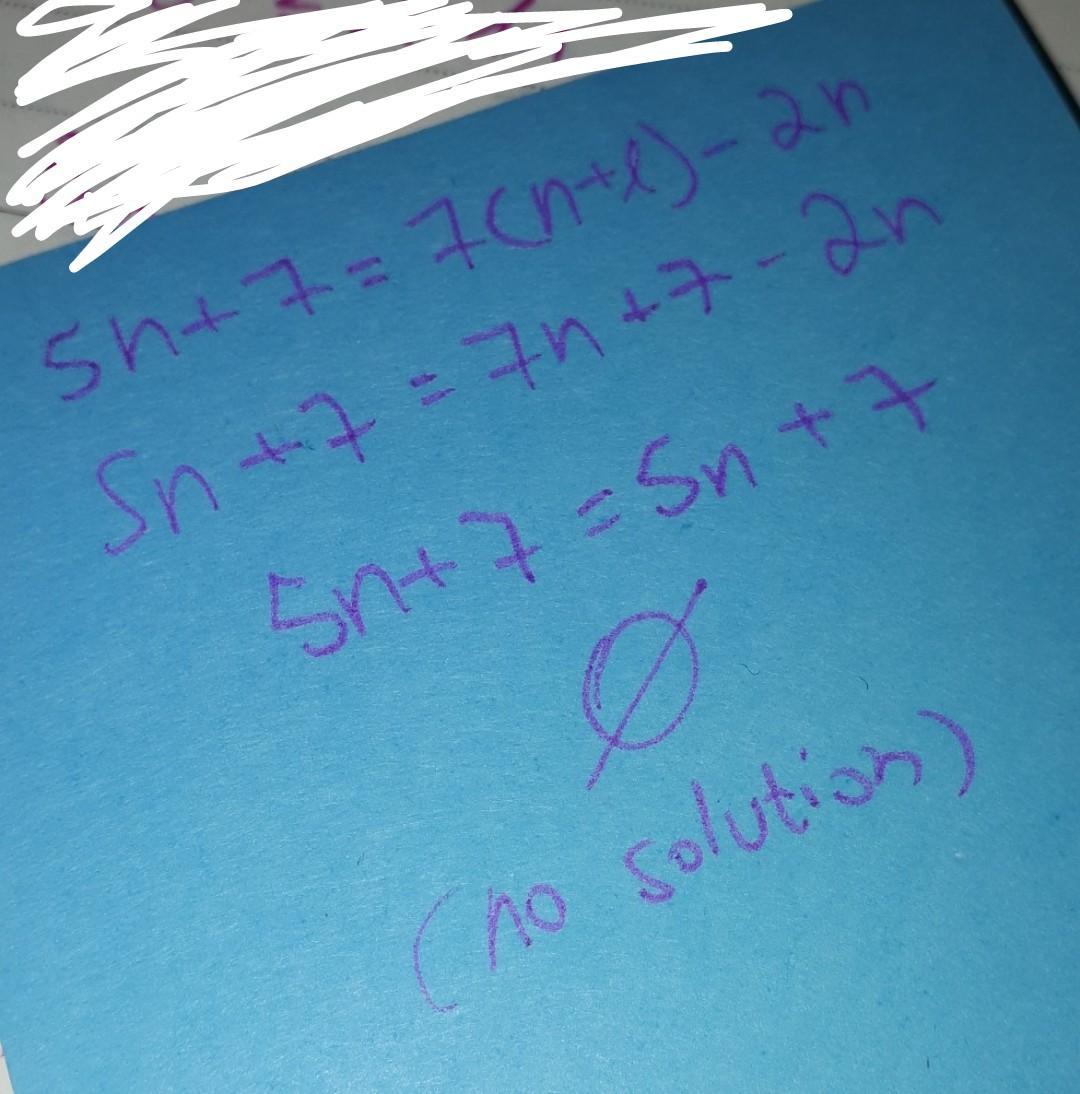 5n+7=7(n+1)-2n
5n+7=7n+7-2n
5n+7=5n+7
∅
(no solution)